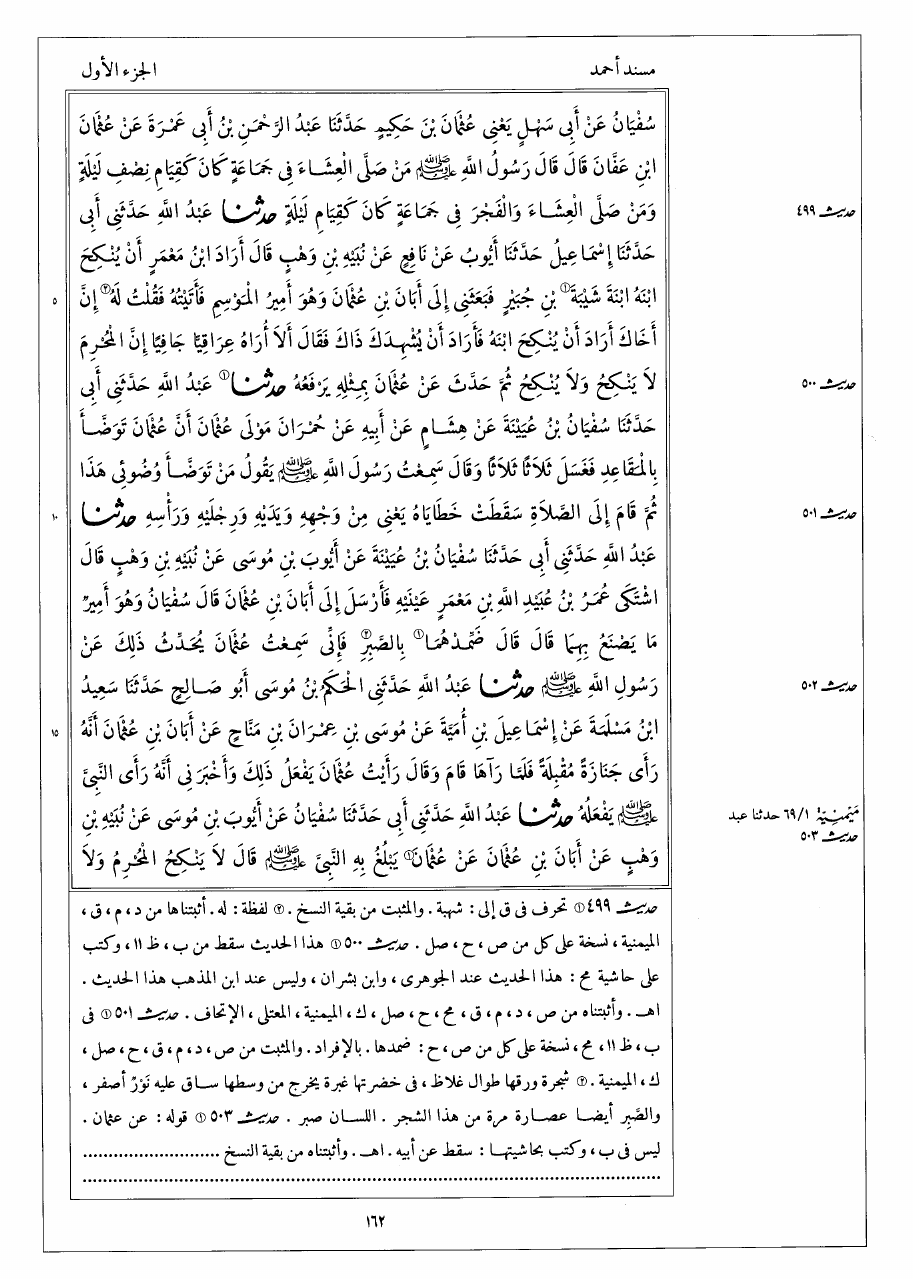 مسند أحمد الجزء الأول
سُفْيَانُ عَنْ أَبِى سَهْلٍ يَعْنِى عُثْمَانَ بْنَ حَكِيمٍ حَدَّثَنَا عَبْدُ الرَّحْمَنِ بْنُ أَبِى عَمْرَةَ عَنْ عُثْمَانَ
ابْنِ عَفَّانَ قَالَ قَالَ رَسُولُ اللَّهِ ﷺ مَنْ صَلَّى الْعِشَاءَ فِى جَمَاعَةٍ كَانَ كَقِيَامِ نِصْفِ لَيْلَةٍ
وَمَنْ صَلَّى الْعِشَاءَ وَالْفَجْرَ فِى جَمَاعَةٍ كَانَ كَقِيَامِ لَيْلَةٍ حدثنا عَبْدُ اللَّهِ حَدَّثَنِى أَبِى
حديث ٤٩٩
حَدَّثَنَا إِسْمَاعِيلُ حَدَّثَنَا أَيُّوبُ عَنْ نَافِعٍ عَنْ نُبَيْهِ بْنِ وَهْبٍ قَالَ أَرَادَ ابْنُ مَعْمَرٍ أَنْ يُنْكِحَ
ابْنَهُ ابْنَةَ شَيْبَةَ① بْنِ جُبَيْرٍ فَبَعَثَنِى إِلَى أَبَانَ بْنِ عُثْمَانَ وَهُوَ أَمِيرُ الْمَوْسِمِ فَأَتَيْتُهُ فَقُلْتُ لَهُ② إِنَّ
٥
أَخَاكَ أَرَادَ أَنْ يُنْكِحَ ابْنَهُ فَأَرَادَ أَنْ يُشْهِدَكَ ذَاكَ فَقَالَ أَلاَ أُرَاهُ عِرَاقِيًّا جَافِيًا إِنَّ الْمُحْرِمَ
لاَ يَنْكِحُ وَلاَ يُنْكِحُ ثُمَّ حَدَّثَ عَنْ عُثْمَانَ بِمِثْلِهِ يَرْفَعُهُ حدثنا① عَبْدُ اللَّهِ حَدَّثَنِى أَبِى
حديث ٥٠٠
حَدَّثَنَا سُفْيَانُ بْنُ عُيَيْنَةَ عَنْ هِشَامٍ عَنْ أَبِيهِ عَنْ حُمْرَانَ مَوْلَى عُثْمَانَ أَنَّ عُثْمَانَ تَوَضَّأَ
بِالْمَقَاعِدِ فَغَسَلَ ثَلاَثًا ثَلاَثًا وَقَالَ سَمِعْتُ رَسُولَ اللَّهِ ﷺ يَقُولُ مَنْ تَوَضَّأَ وُضُوئِى هَذَا
ثُمَّ قَامَ إِلَى الصَّلاَةِ سَقَطَتْ خَطَايَاهُ يَعْنِى مِنْ وَجْهِهِ وَيَدَيْهِ وَرِجْلَيْهِ وَرَأْسِهِ حدثنا
حديث ٥٠١
١٠
عَبْدُ اللَّهِ حَدَّثَنِى أَبِى حَدَّثَنَا سُفْيَانُ بْنُ عُيَيْنَةَ عَنْ أَيُّوبَ بْنِ مُوسَى عَنْ نُبَيْهِ بْنِ وَهْبٍ قَالَ
اشْتَكَى عُمَرُ بْنُ عُبَيْدِ اللَّهِ بْنِ مَعْمَرٍ عَيْنَيْهِ فَأَرْسَلَ إِلَى أَبَانَ بْنِ عُثْمَانَ قَالَ سُفْيَانُ وَهُوَ أَمِيرٌ
مَا يَصْنَعُ بِهِمَا قَالَ قَالَ ضَمِّدْهُمَا① بِالصَّبِرِ② فَإِنِّى سَمِعْتُ عُثْمَانَ يُحَدِّثُ ذَلِكَ عَنْ
رَسُولِ اللَّهِ ﷺ حدثنا عَبْدُ اللَّهِ حَدَّثَنِى الْحَكَمُ بْنُ مُوسَى أَبُو صَالِحٍ حَدَّثَنَا سَعِيدُ
حديث ٥٠٢
ابْنُ مَسْلَمَةَ عَنْ إِسْمَاعِيلَ بْنِ أُمَيَّةَ عَنْ مُوسَى بْنِ عِمْرَانَ بْنِ مَنَّاحٍ عَنْ أَبَانَ بْنِ عُثْمَانَ أَنَّهُ
١٥
رَأَى جَنَازَةً مُقْبِلَةً فَلَمَّا رَآهَا قَامَ وَقَالَ رَأَيْتُ عُثْمَانَ يَفْعَلُ ذَلِكَ وَأَخْبَرَنِى أَنَّهُ رَأَى النَّبِىَّ
ﷺ يَفْعَلُهُ حدثنا عَبْدُ اللَّهِ حَدَّثَنِى أَبِى حَدَّثَنَا سُفْيَانُ عَنْ أَيُّوبَ بْنِ مُوسَى عَنْ نُبَيْهِ بْنِ
مَيْمَنِيّة ٦٩/١ حدثنا عبد
حديث ٥٠٣
وَهْبٍ عَنْ أَبَانَ بْنِ عُثْمَانَ عَنْ عُثْمَانَ① يَبْلُغُ بِهِ النَّبِىَّ ﷺ قَالَ لاَ يَنْكِحُ الْمُحْرِمُ وَلاَ
حديث ٤٩٩ ① تحرف فى ق إلى : شهبة . والمثبت من بقية النسخ . ② لفظة : له . أثبتناها من د ، م ، ق ،
الميمنية ، نسخة على كل من ص ، ح ، صل . حديث ٥٠٠ ① هذا الحديث سقط من ب ، ظ ١١ ، وكتب
على حاشية مح : هذا الحديث عند الجوهرى ، وابن بشران ، وليس عند ابن المذهب هذا الحديث .
اهـ . وأثبتناه من ص ، د ، م ، ق ، مح ، ح ، صل ، ك ، الميمنية ، المعتلى ، الإتحاف . حديث ٥٠١ ① فى
ب ، ظ ١١ ، مح ، نسخة على كل من ص ، ح : ضمدها . بالإفراد . والمثبت من ص ، د ، م ، ق ، ح ، صل ،
ك ، الميمنية . ② شجرة ورقها طوال غلاظ ، فى خضرتها غبرة يخرج من وسطها ساق عليه نَوْرٌ أصفر ،
والصَّبِر أيضا عصارة مرة من هذا الشجر . اللسان صبر . حديث ٥٠٣ ① قوله : عن عثمان .
ليس فى ب ، وكتب بحاشيتها : سقط عن أبيه . اهـ . وأثبتناه من بقية النسخ ...........................
................................................................................
١٦٢